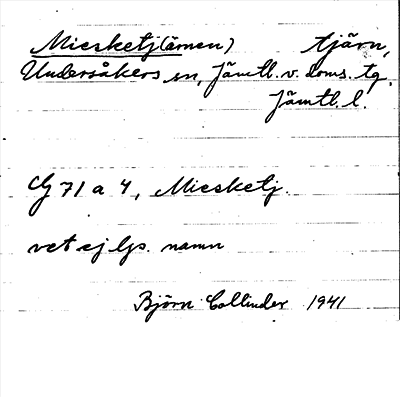 Miesketj(ärnen) tjärn,
Undersåkers sn, Jämtl. v. doms. tg.
Jämtl. l.
Gg 71 a 4, Miesketj.
vet ej lps. namn
Björn Collinder 1941